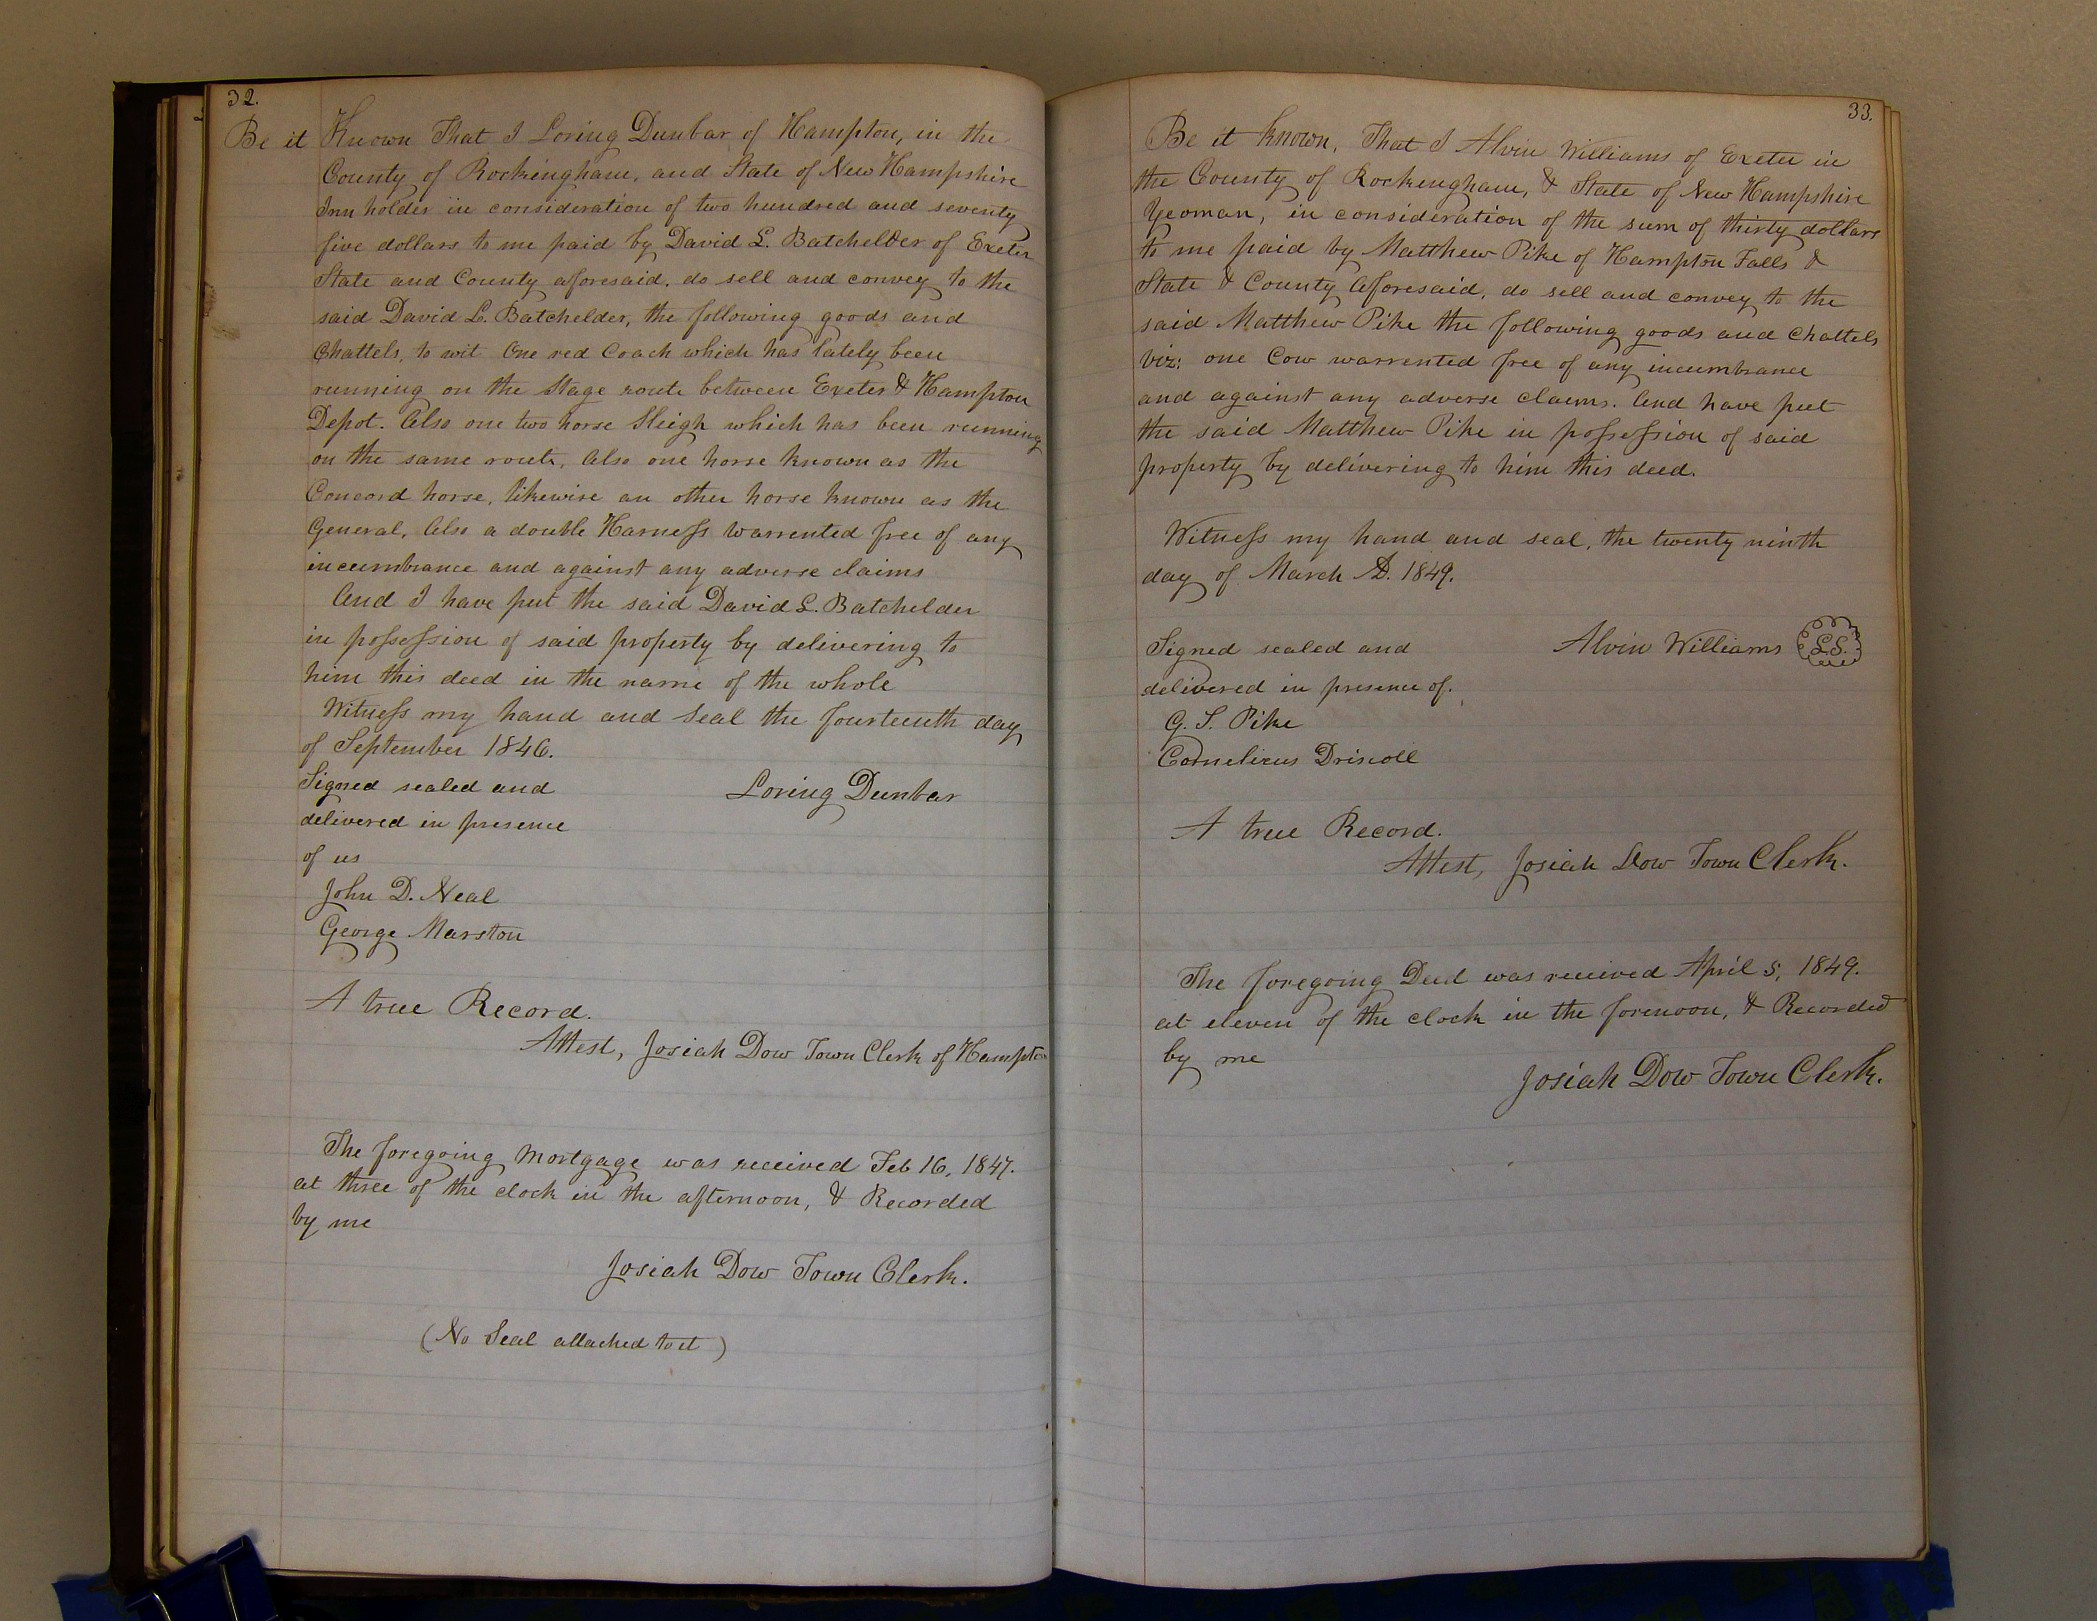 32.
Be it Known That I Loring Dunbar of Hampton, in the
County of Rockingham, and State of New Hampshire
Inn holder in consideration of two hundred and seventy
five dollars to me paid by David L. Batchelder of Exeter
State and County aforesaid, do sell and convey to the
said David L. Batchelder, the following goods and
Chattels, to wit One red Coach which has lately been
running on the Stage route between Exeter & Hampton
Depot. Also one two horse Sleigh which has been running
on the same route, Also one horse known as the
Concord horse, likewise an other horse known as the
General, Also a double Harness Warrented free of any
incumbrance and against any adverse claims
And I have put the said David L. Batchelder
in possession of said property by delivering to
him this deed in the name of the whole
Witness my hand and Seal the fourteenth day
of September 1846.
Signed sealed and Loring Dunbar
delivered in presence
of us
John D. Neal
George Marston
A true Record.
Attest, Josiah Dow Town Clerk of Hampton
The foregoing Mortgage was received Feb 16, 1847.
at three of the clock in the afternoon, & Recorded
by me
Josiah Dow Town Clerk.
(No Seal attached to it)
33.
Be it known, That I Alvin Williams of Exeter in
the County of Rockingham, & State of New Hampshire
Yeoman, in consideration of the sum of thirty dollars
to me paid by Matthew Pike of Hampton Falls &
State & County Aforesaid, do sell and convey to the
said Matthew Pike the following goods and Chattels
viz: one Cow warrented free of any incumbrance
and against any adverse claims. And have put
the said Matthew Pike in possession of said
property by delivering to him this deed.
Witness my hand and seal, the twenty ninth
day of March AD. 1849.
Signed sealed and Alvin Williams L.S.
delivered in presence of.
G. S. Pike
Cornelieus Driscoll
A true Record.
Attest, Josiah Dow Town Clerk.
The foregoing Deed was received April 5, 1849.
at eleven of the clock in the forenoon, & Recorded
by me
Josiah Dow Town Clerk.